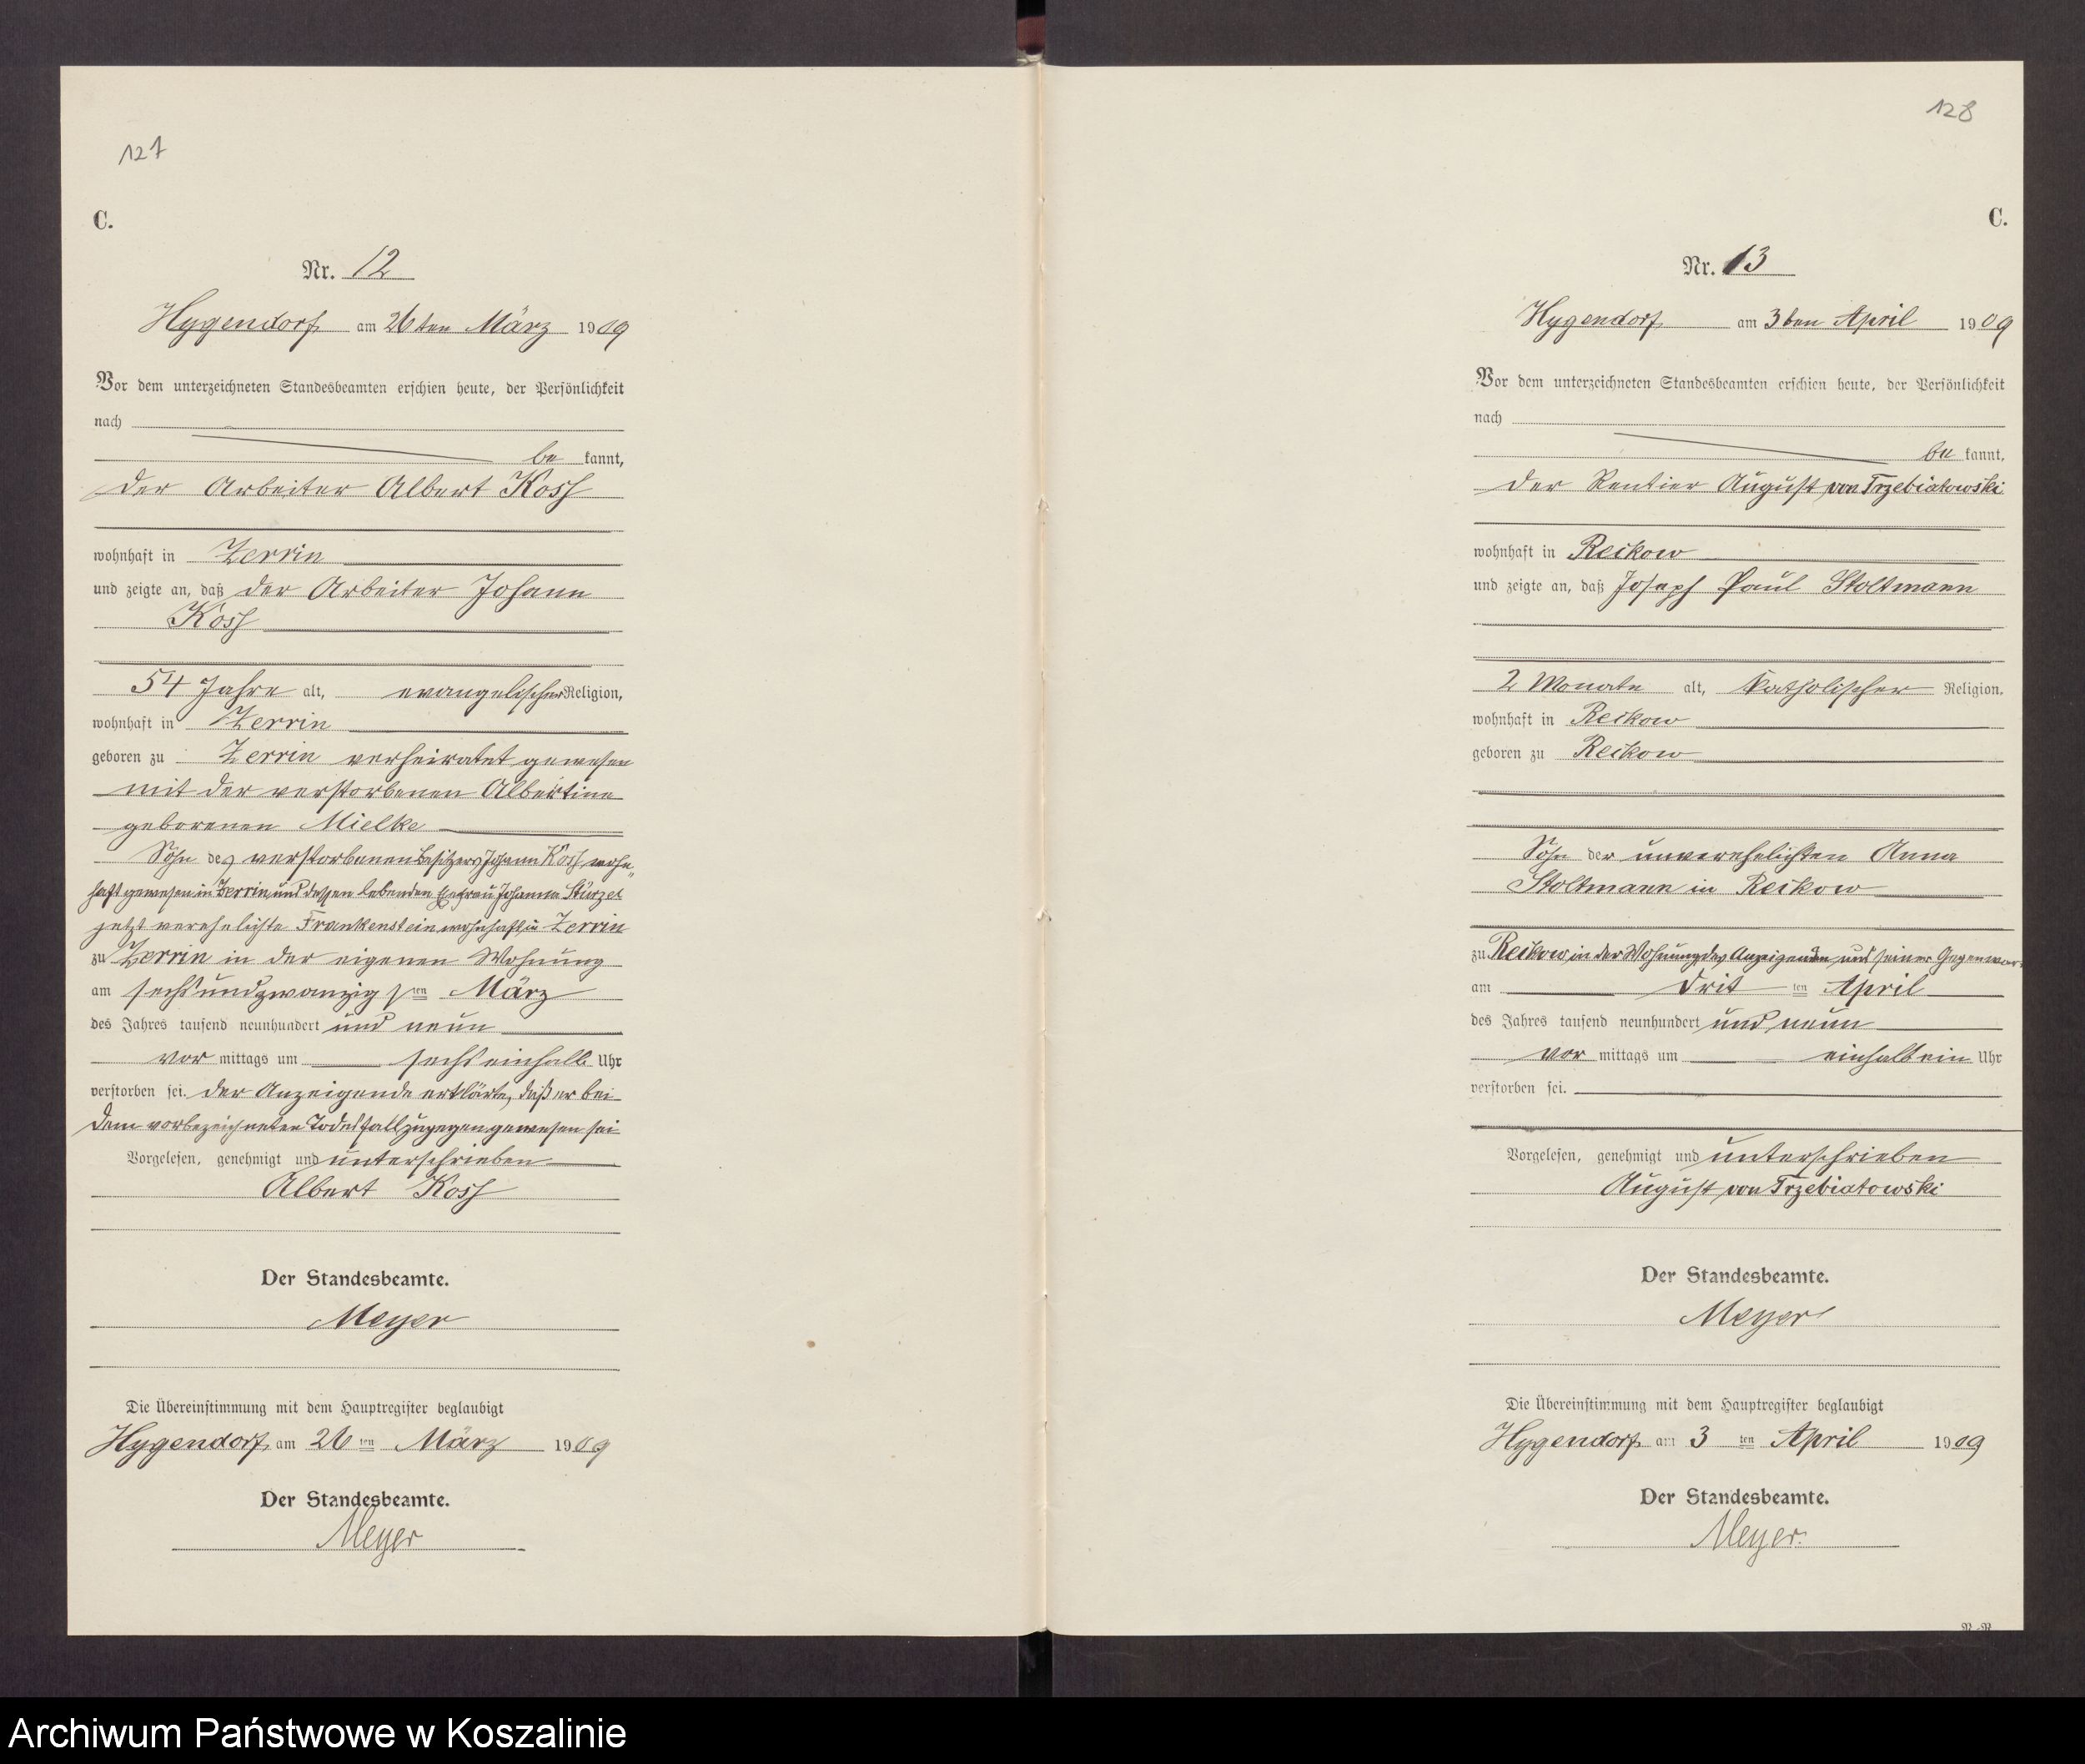 127
C.
Nr. 12
Hygendorf am 26ten März 1909
Vor dem unterzeichneten Standesbeamten erschien heute, der Persönlichkeit
nach
be kannt,
der Arbeiter Albert Koss
wohnhaft in Zerrin
und zeigte an, daß der Arbeiter Johann
Koss
54 Jahre alt, evangelischer Religion,
wohnhaft in Zerrin
geboren zu Zerrin verheiratet gewesen
mit der verstorbenen Albertine
geborenen Mielke
Sohn des verstorbenen Besitzers Johann Koss wohn-
haft gewesen in Zerrin und dessen lebenden Ehefrau Johanna Stürzel
jetzt verehelichte Frankenstein wohnhaft in Zerrin
zu Zerrin in der eigenen Wohnung
am sechsundzwanzigsten März
des Jahres tausend neunhundert und neun
vor mittags um sechseinhalb Uhr
verstorben sei. Der Anzeigende erklärte, daß er bei
dem vorbezeichneten Todesfall zugegen gewesen sei
Vorgelesen, genehmigt und unterschrieben
Albert Koss
Der Standesbeamte.
Meyer
Die Übereinstimmung mit dem Hauptregister beglaubigt
Hygendorf, am 26 ten März 1909
Der Standesbeamte.
Meyer
128
C.
Nr. 13
Hygendorf am 3ten April 1909
Vor dem unterzeichneten Standesbeamten erschien heute, der Persönlichkeit
nach
be kannt,
der Rentier August von Trzebiatowski
wohnhaft in Reikow
und zeigte an, daß Joseph Paul Stoltmann
2 Monate alt, katholischer Religion,
wohnhaft in Reikow
geboren zu Reikow
Sohn der unverehelichten Anna
Stoltmann in Reikow
zu Reikow in der Wohnung des Anzeigenden und seiner Gegenwart
am drit ten April
des Jahres tausend neunhundert und neun
vor mittags um einhalb ein Uhr
verstorben sei.
Vorgelesen, genehmigt und unterschrieben
August von Trzebiatowski
Der Standesbeamte.
Meyer
Die Übereinstimmung mit dem Hauptregister beglaubigt
Hygendorf am 3 ten April 1909
Der Standesbeamte.
Meyer.
Archiwum Państwowe w Koszalinie